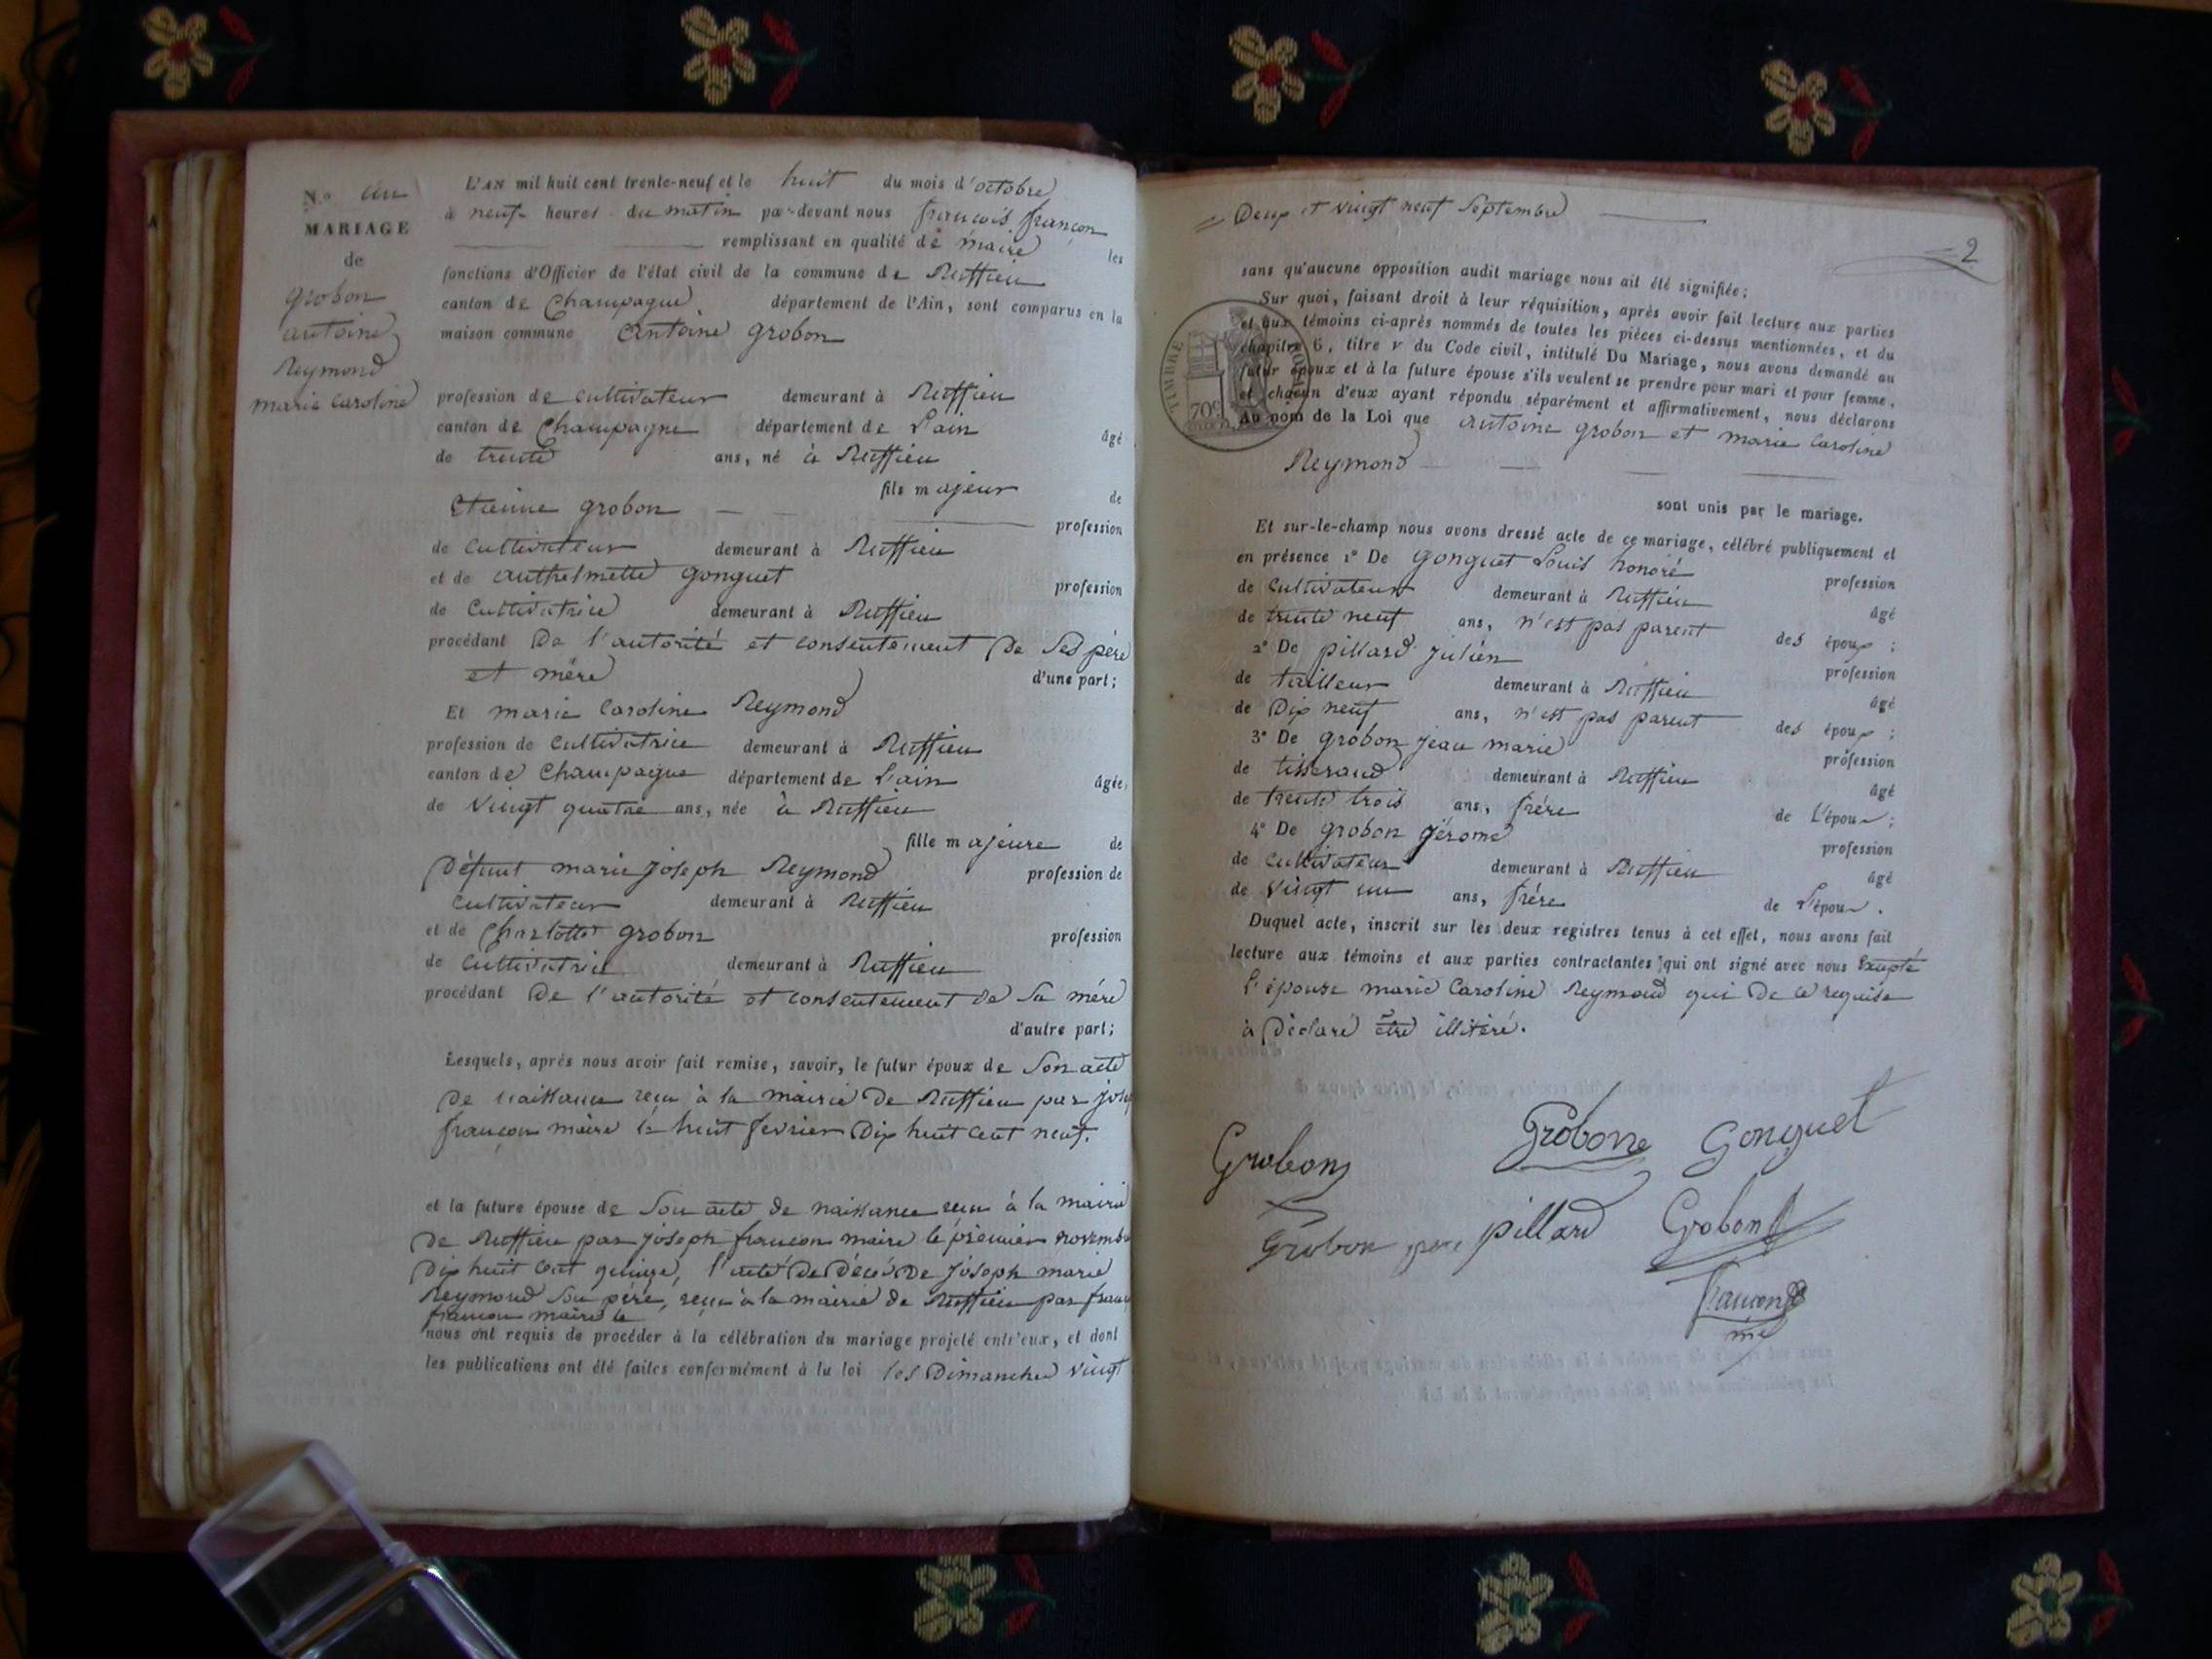 N.o un
MARIAGE
de
grobon
antoine
Reymond
marie caroline
L'AN mil huit cent trente-neuf et le huit du mois d'octobre
à neuf heures du matin par-devant nous françois françon
remplissant en qualité de maire les
fonctions d'Officier de l'état civil de la commune de Ruffieu
canton de Champagne département de l'Ain, sont comparus en la
maison commune Antoine grobon
profession de cultivateur demeurant à Ruffieu
canton de Champagne département de L'ain âgé
de trente ans, né à Ruffieu
fils majeur de
Etienne grobon profession
de cultivateur demeurant à Ruffieu
et de anthelmette gonguet profession
de Cultivatrice demeurant à Ruffieu
procédant De l'autorité et consentement De Ses père
et mère d'une part;
Et marie Caroline Reymond
profession de Cultivatrice demeurant à Ruffieu
canton de Champagne département de L'ain âgée
de vingt quatre ans, née à Ruffieu
fille majeure de
Défunt marie joseph Reymond profession de
Cultivateur demeurant à Ruffieu
et de Charlotte grobon profession
de Cultivatrice demeurant à Ruffieu
procédant De l'autorité et consentement de Sa mère
d'autre part;
Lesquels, après nous avoir fait remise, savoir, le futur époux de Son acte
De naissance reçu à la mairie De Ruffieu par
françon maire le huit fevrier Dix huit cent neuf.
et la future épouse de Son acte de naissance reçu à la mairie
De Ruffieu par joseph françon maire le premier
Dix huit cent quinze, l'acte De Décès De joseph marie
Reymond Son père, reçu à la mairie de Ruffieu par
françon maire le
nous ont requis de procéder à la célébration du mariage projeté entr'eux, et dont
les publications ont été faites conformément à la loi les Dimanches vingt
= Deux et vingt neuf Septembre
= 2
sans qu'aucune opposition audit mariage nous ait été signifiée;
Sur quoi, faisant droit à leur réquisition, après avoir fait lecture aux parties
et aux témoins ci-après nommés de toutes les pièces ci-dessus mentionnées, et du
chapitre 6, titre v du Code civil, intitulé Du Mariage, nous avons demandé au
futur époux et à la future épouse s'ils veulent se prendre pour mari et pour femme,
et chacun d'eux ayant répondu séparément et affirmativement, nous déclarons
Au nom de la Loi que Antoine grobon et marie Caroline
Reymond
sont unis par le mariage.
TIMBRE
70c
Et sur-le-champ nous avons dressé acte de ce mariage, célébré publiquement et
en présence 1° De gonguet Louis honoré
de Cultivateur demeurant à Ruffieu profession
de trente neuf ans, n'est pas parent âgé
des époux ;
2° De pillard julien
de tailleur demeurant à Ruffieu profession
de Dix neuf ans, n'est pas parent âgé
des époux ;
3° De grobon jean marie
de tisserand demeurant à Ruffieu profession
de trente trois ans, frère âgé
de L'époux ;
4° De grobon jérome
de Cultivateur demeurant à Ruffieu profession
de vingt un ans, frère âgé
de L'époux .
Duquel acte, inscrit sur les deux registres tenus à cet effet, nous avons fait
lecture aux témoins et aux parties contractantes qui ont signé avec nous Excepté
L'épouse marie Caroline Reymond qui De ce requise
à Déclaré être illitéré.
Grobon
Grobon
Gonguet
Grobon père
pillard
Grobon
françon